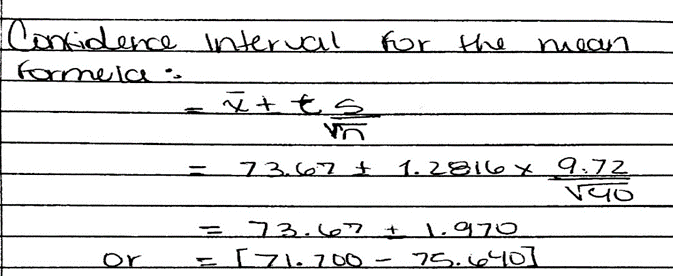 Confidence interval for the mean
formula :-
= x̄ + t s/√n
= 73.67 ± 1.2816 × 9.72/√40
= 73.67 ± 1.970
or = [71.700 - 75.640]